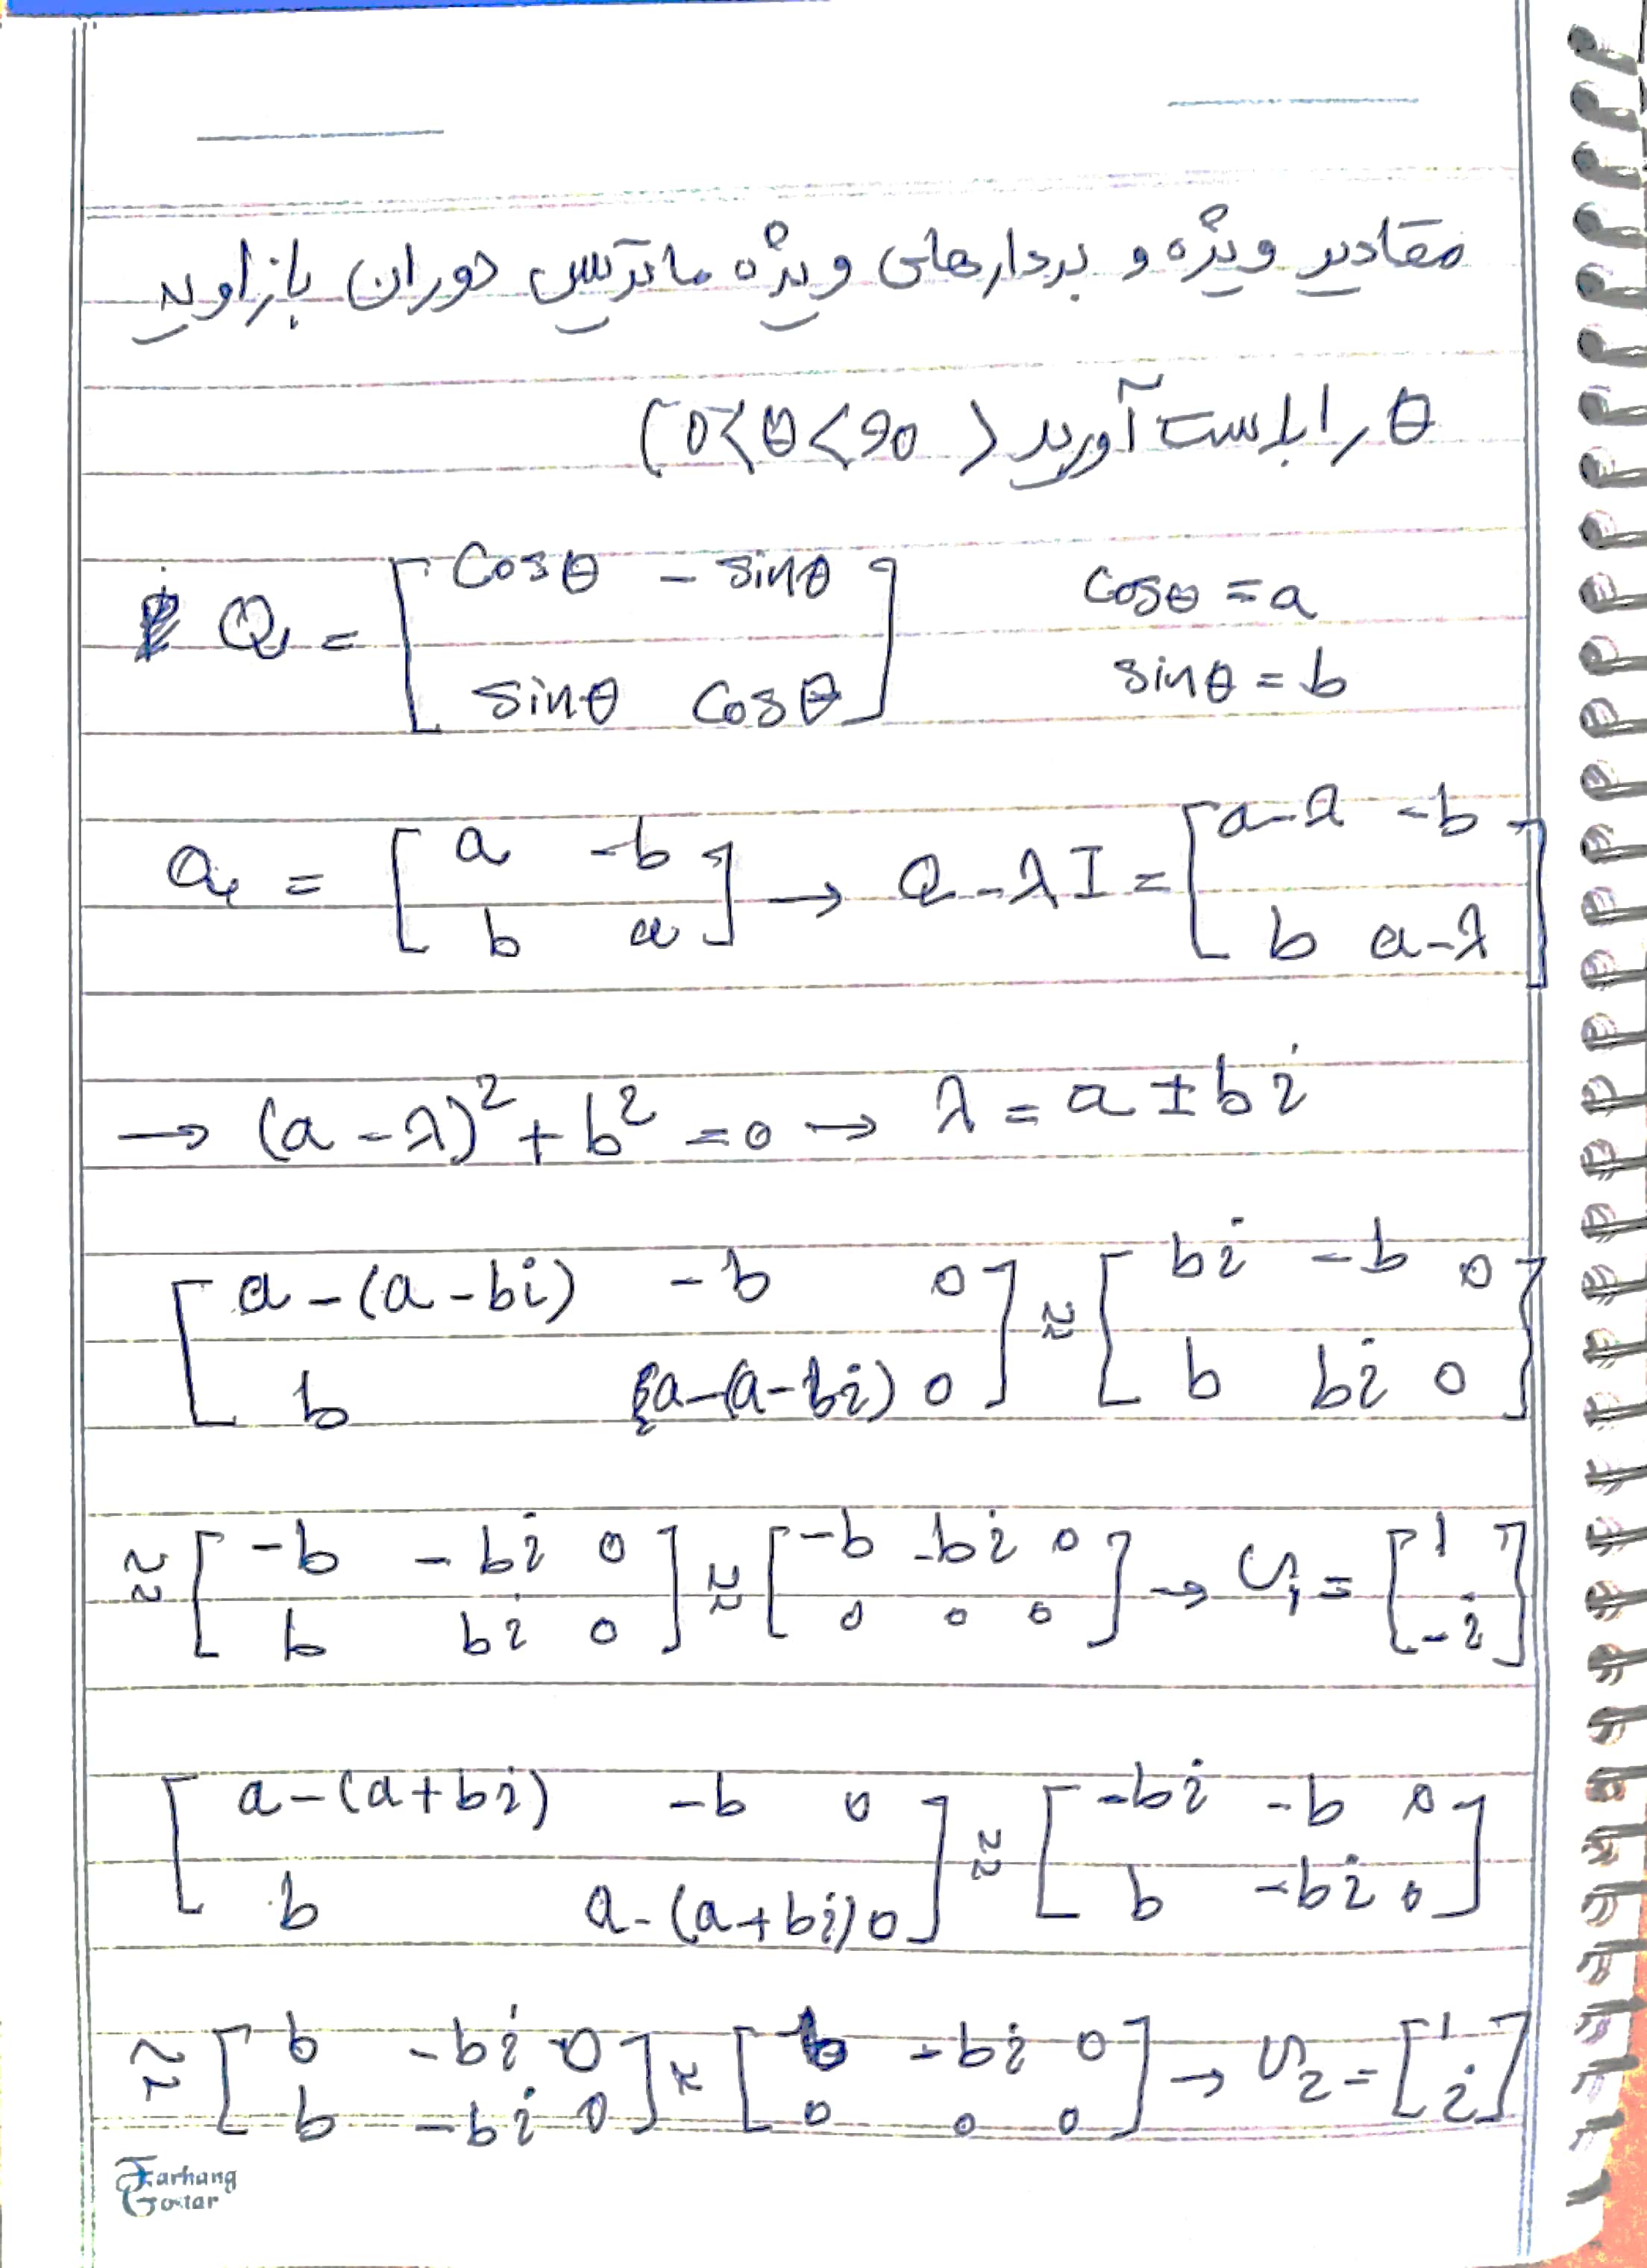 مقادیر ویژه و بردارهای ویژه ماتریس دوران با زاویه
θ را بدست آورید (0<θ<90)
Q = [cosθ -sinθ; sinθ cosθ] cosθ = a sinθ = b
Q = [a -b; b a] → Q-λI = [a-λ -b; b a-λ]
→ (a-λ)² + b² = 0 → λ = a ± bi
[a-(a-bi) -b 0; b a-(a-bi) 0] ≈ [bi -b 0; b bi 0]
≈ [-b -bi 0; b bi 0] ≈ [-b -bi 0; 0 0 0] → v₁ = [1; -i]
[a-(a+bi) -b 0; b a-(a+bi) 0] ≈ [-bi -b 0; b -bi 0]
≈ [b -bi 0; b -bi 0] ≈ [b -bi 0; 0 0 0] → v₂ = [1; i]
Farhang
Gostar